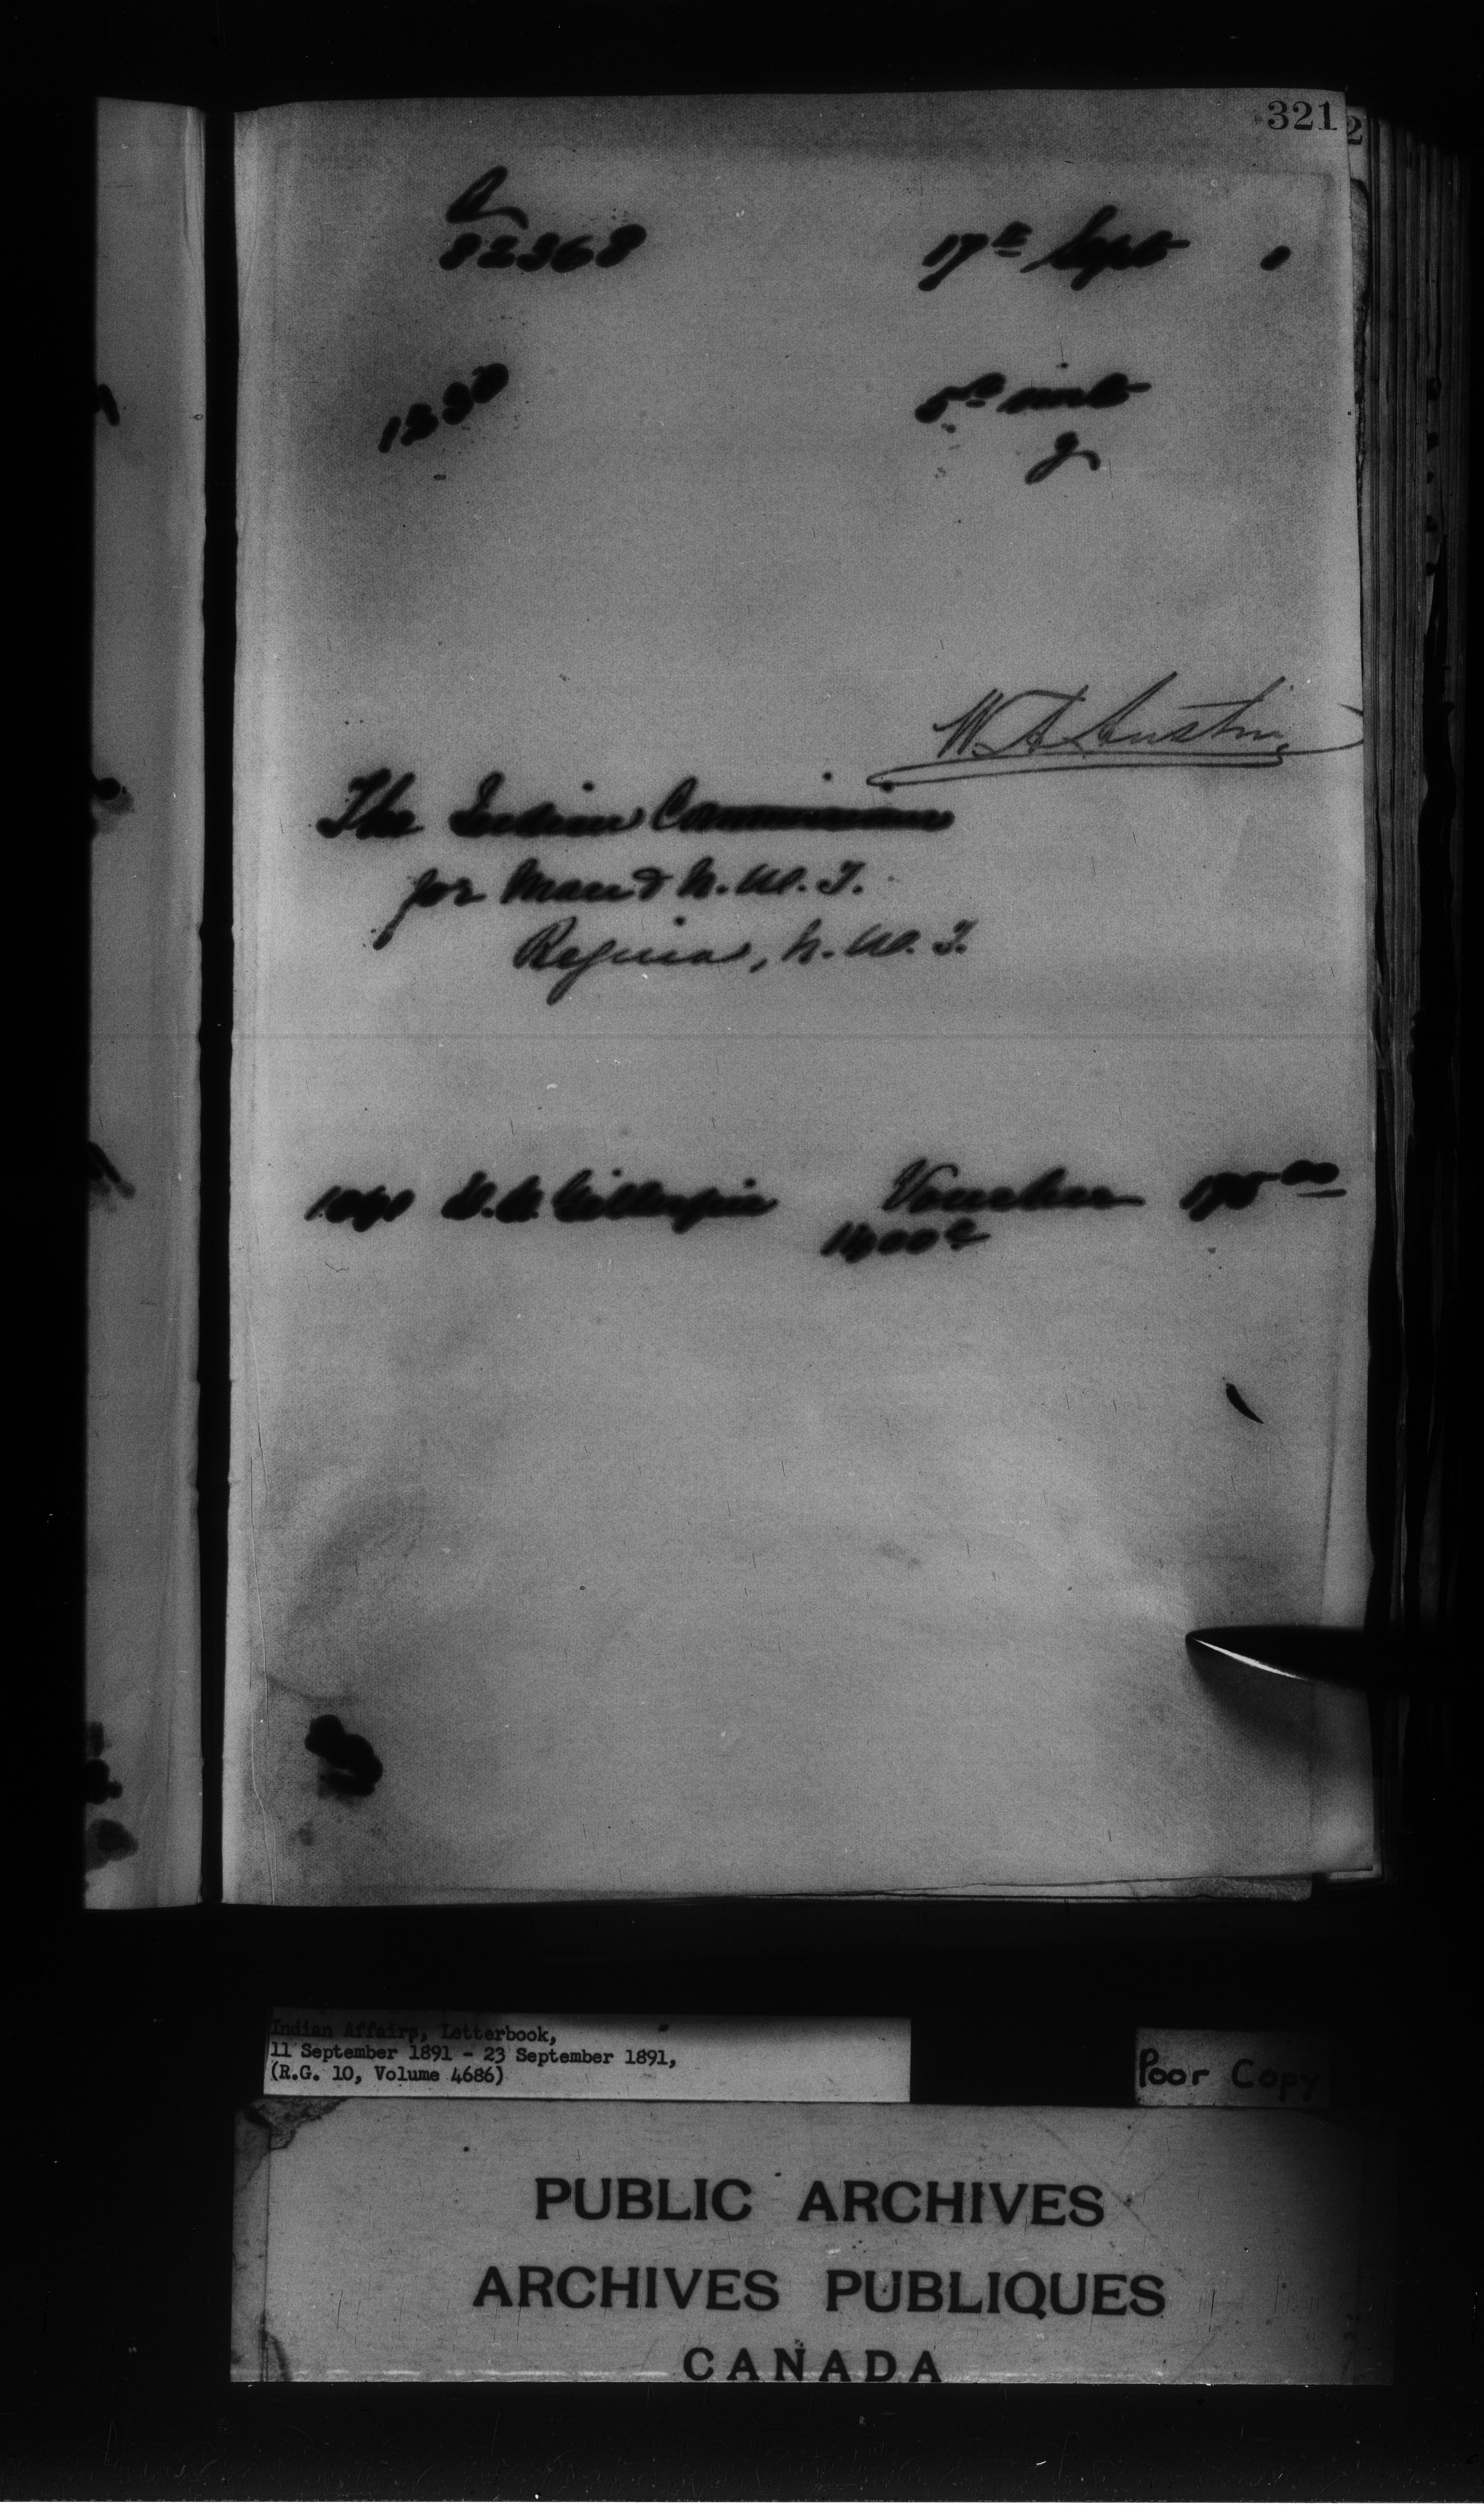 321
2
82368 17th Sept 1
1330 5th inst
W. A. Austin
The Indian Commissioner
for Man & N. W. T.
Regina, N. W. T.
Gillespie Voucher 175 00
Indian Affairs, Letterbook,
11 September 1891 - 23 September 1891,
(R.G. 10, Volume 4686)
Poor Copy
PUBLIC ARCHIVES
ARCHIVES PUBLIQUES
CANADA